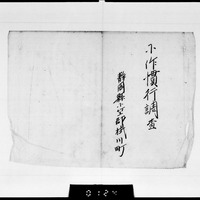 小作慣行調査
静岡縣小笠郡掛川町